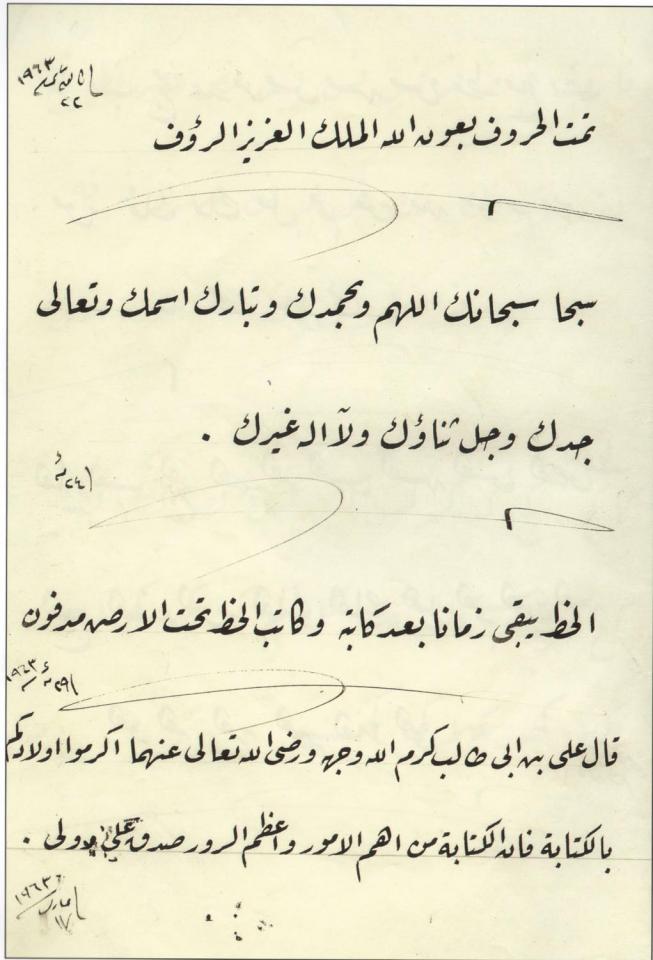 ١٩٦٣
٢٢
تمت الحروف بعون الله الملك العزيز الرؤف
سبحا سبحانك اللهم وبحمدك وتبارك اسمك وتعالى
جدك وجل ثناؤك ولآ اله غيرك .
الخط يبقى زمانا بعد كتابة وكاتب الخط تحت الارض مدفون
١٩٦٣
قال على بن ابى طالب كرم الله وجهه ورضى الله تعالى عنهما اكرموا اولادكم
بالكتابة فان الكتابة من اهم الامور واعظم السرور صدق على
١٩٦٣
مارس
١٧